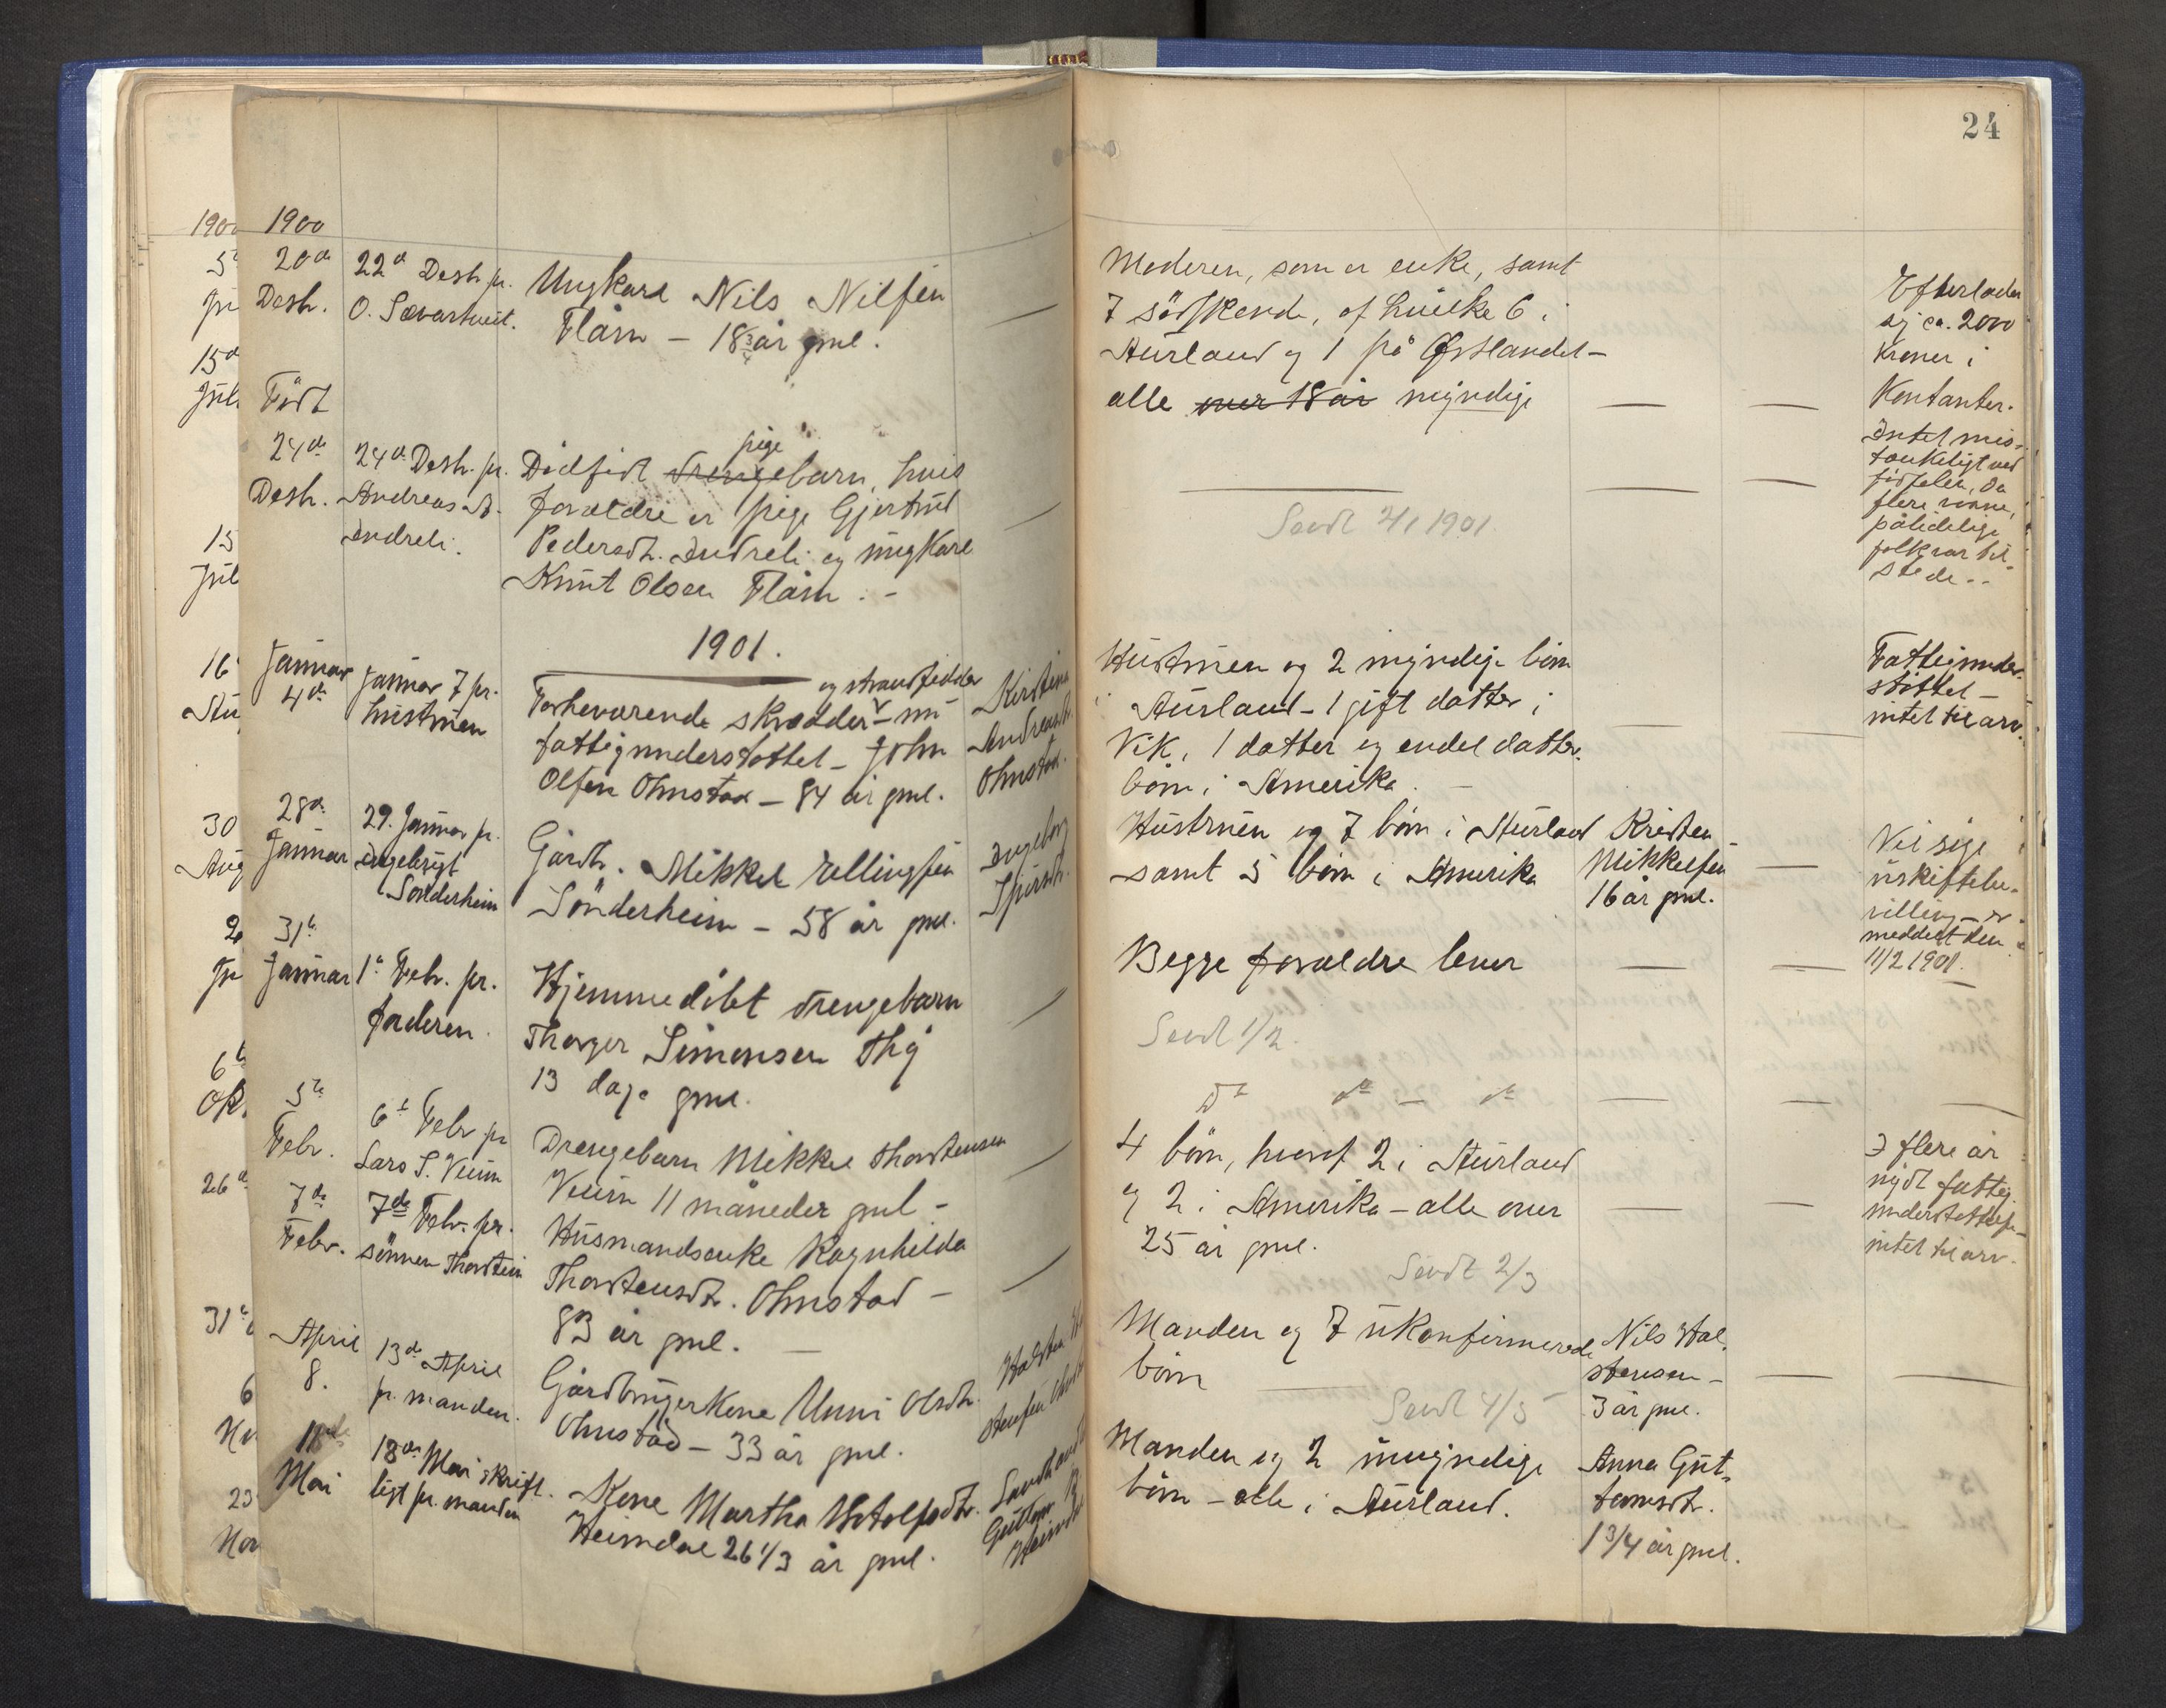 1900
20de
Desbr.
22de Desbr. pr.
O. Sævartveit.
Ungkarl Nils Nilsen
Flåm – 18 3/4 år gml.
Født
24de
Desbr.
24de Desbr. pr.
Andreas A.
Indreli.
pige
Dødfødt drengebarn, hvis
forældre er pige Gjertrud
Pedersdt. Indreli og ungkarl
Knut Olsen Flåm. –
1901.
Januar
4de
Januar 7 pr.
hustruen
og strandsidder
Forhenværende skrædder – nu
fattigunderstøttet – John
Olsen Ohnstad – 84 år gml.
Kirstina
Andreasdt.
Ohnstad.
28de
Januar
29. Januar pr.
Ingebrigt
Sønderheim
Gårdbr. Mikkel Ellingsen
Sønderheim – 58 år gml.
Ingeborg
Iversdt.
31te
Januar
1te Febr. pr.
faderen.
Hjemmedøbt drengebarn
Thorger Simonsen Thy
13 dage gml.
5te
Febr.
6te Febr. pr
Lars S. Veum
Drengebarn Mikkel Thorstensen
Veum 11 måneder gml –
7de
Febr.
7de Febr. pr.
sønnen Thorstein
Husmandsenke Ragnhilda
Thorstensdt. Ohnstad –
83 år gml. –
April
8.
13de April
pr. manden.
Gårdbrugerkone Unni Olsdt.
Ohnstad – 33 år gml.
18de
Mai
18de Mai skrift.
ligt pr. manden
Kone Martha
Heimdal 26 1/3 år gml.
1900
5
15de
15
16
30
Aug
6
Ok.
26de
31te
6
23
Nov
24
Moderen, som er enke, samt
7 södskende, af hvilke 6 i
Aurland og 1 på Østlandet –
alle over 18 år myndige
Efterlader
sig ca. 2000
kroner i
kontanter.
Sendt 2/1 1901.
Intet mis-
tænkeligt ved
fødselen, da
flere vovne,
pålidelige
folk var til-
stede. –
Hustruen og 2 myndige börn
i Aurland – 1 gift datter i
Vik, 1 datter og endel datter-
börn i Amerika. –
Fattigunder-
støttet –
intet til arv.
Hustruen og 7 börn i Aurland
samt 5 börn i Amerika
Kristen
Mikkelsen
16 år gml.
Vil söge
uskiftebe-
villing – er
meddelt den
11/2 1901.
Begge forældre lever
Sendt 1/2.
do do – do
4 börn, hvoraf 2 i Aurland
og 2 i Amerika – alle over
25 år gml.
Sendt 2/3
I flere år
nydt fattig-
understøttelse –
intet til arv.
Manden og 7 ukonfirmerede
börn
Sendt 4/5
Nils Hal-
stensen –
3 år gml.
Manden og 2 umyndige
börn – alle i Aurland.
Anna Gut-
tormsdt.
1 3/4 år gml.